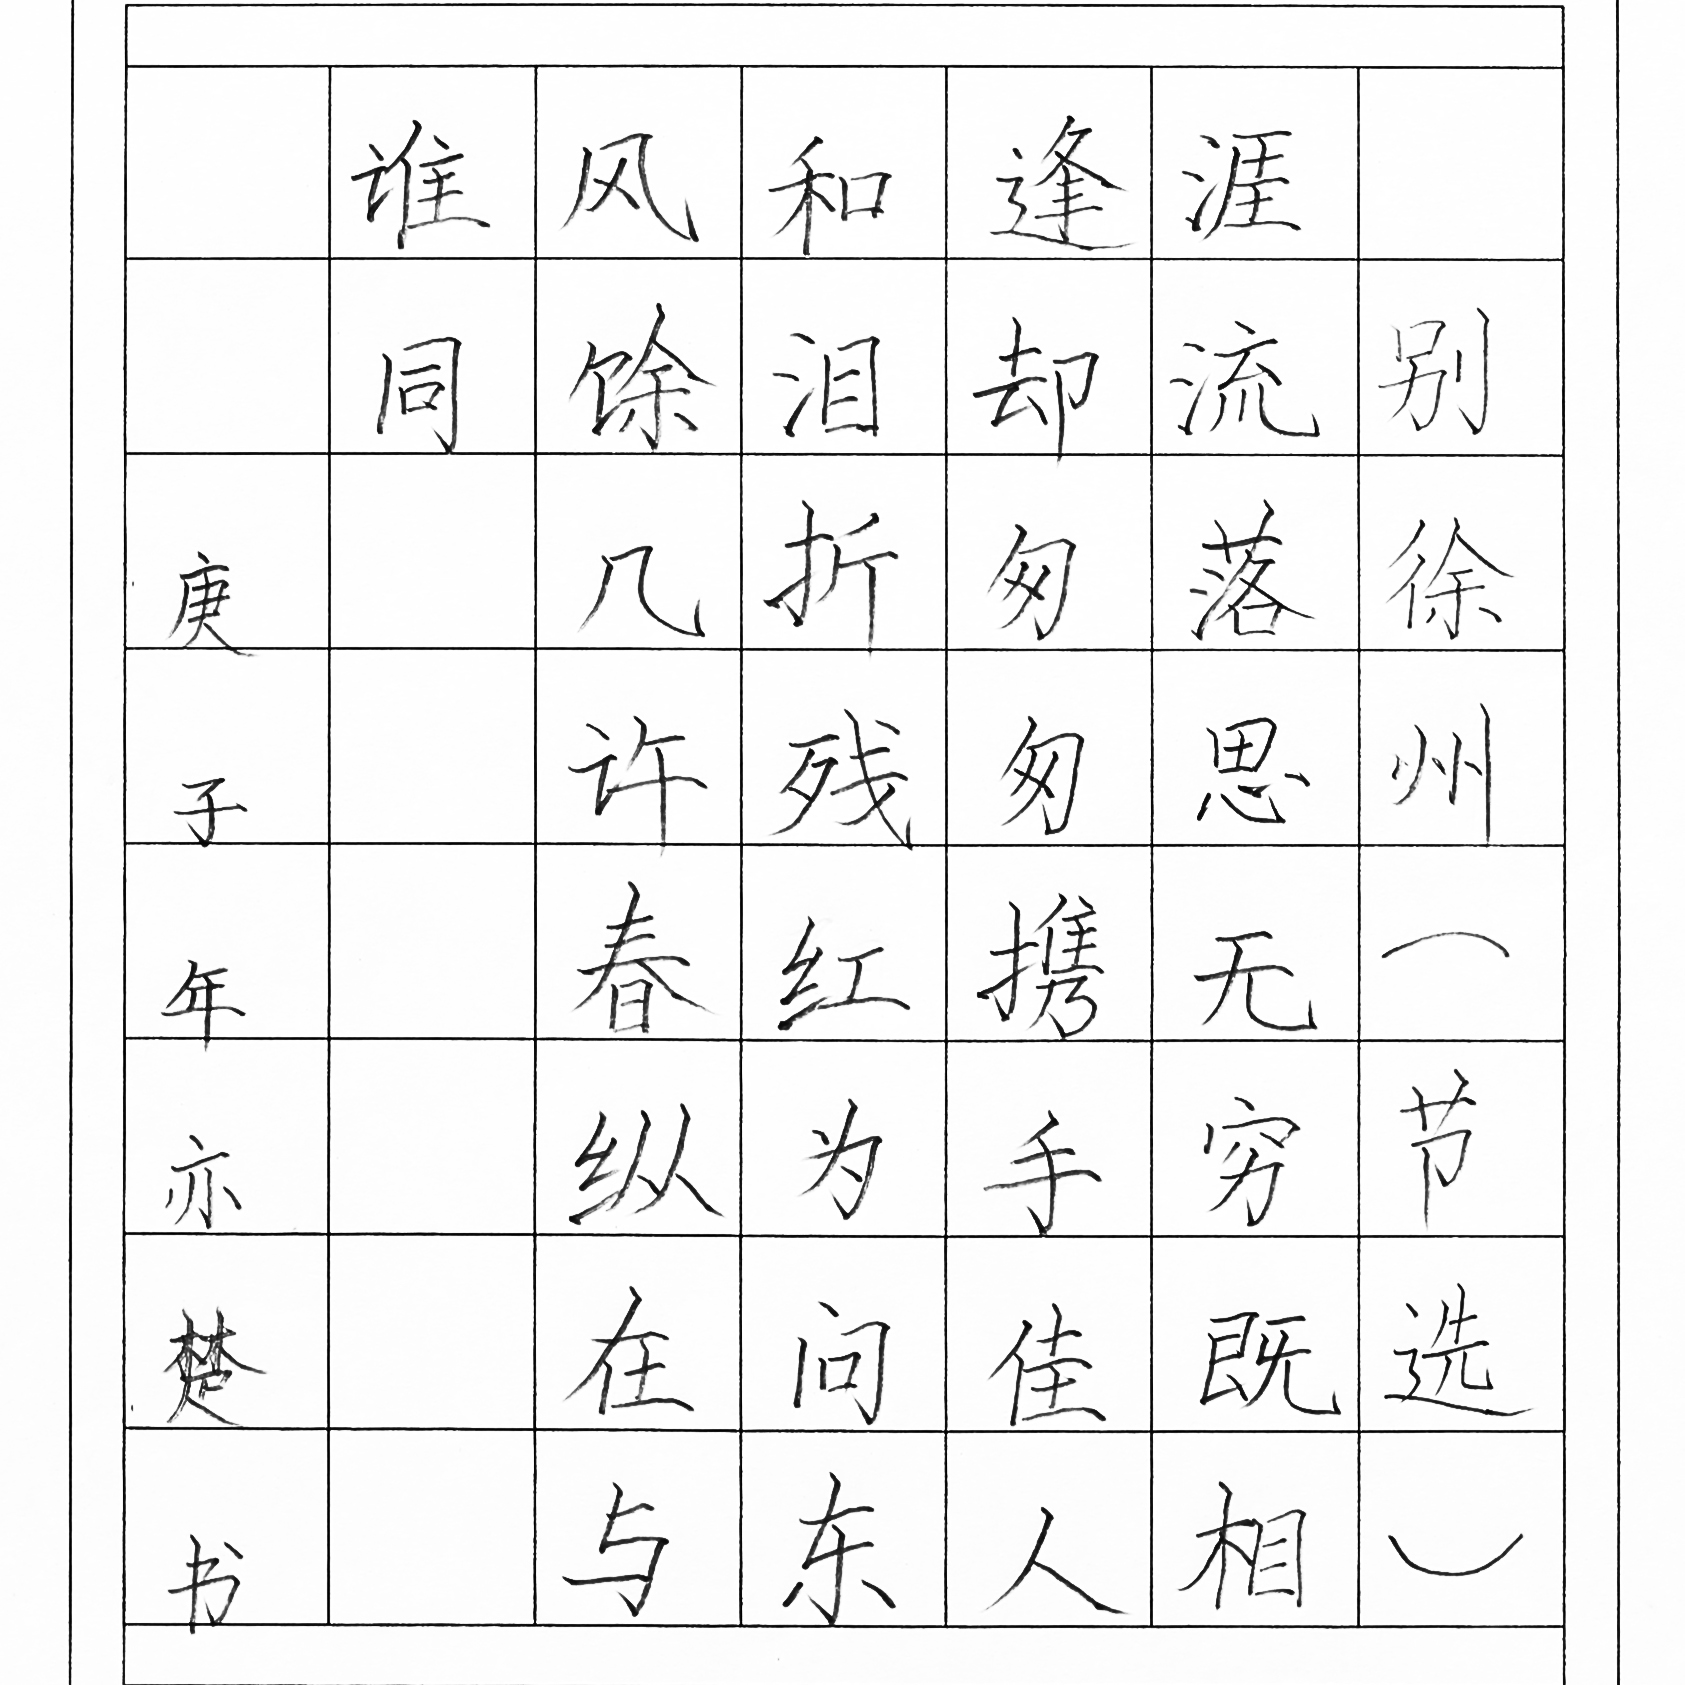 别徐州（节选）
涯流落思无穷既相
逢却匆匆携手佳人
和泪折残红为问东
风馀几许春纵在与
谁同
庚子年亦楚书